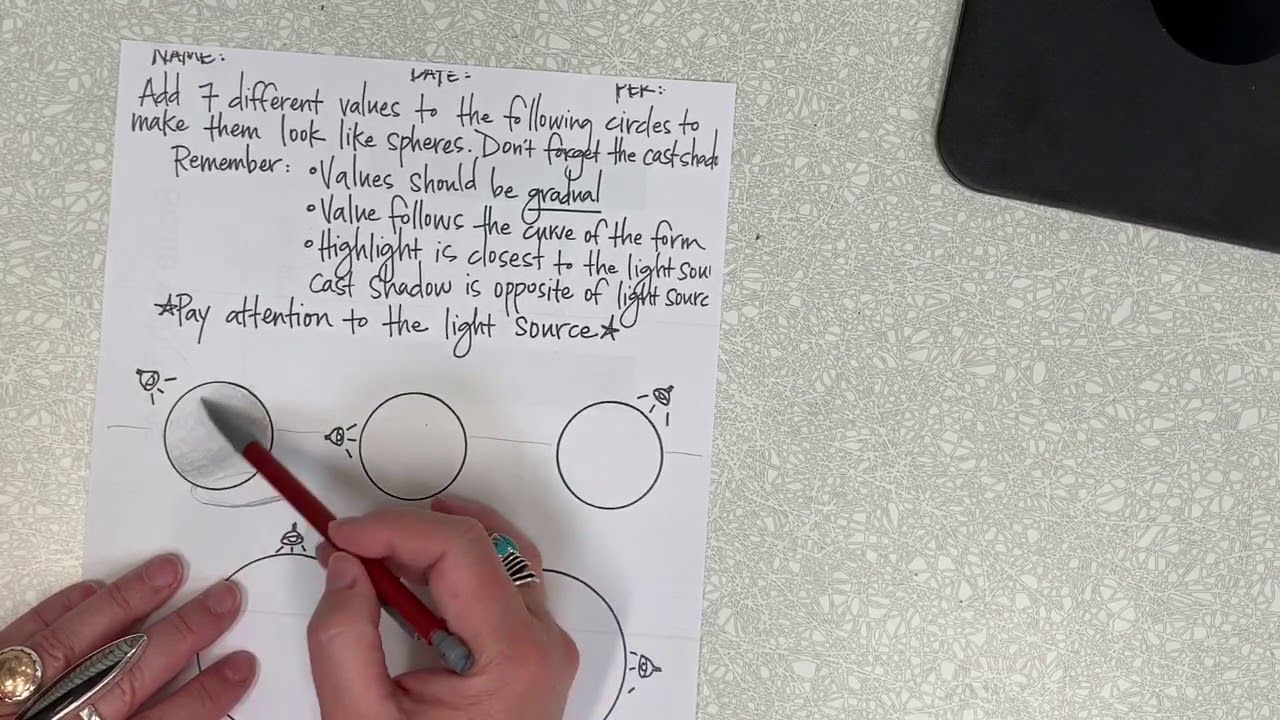 NAME: DATE: PER:
Add 7 different values to the following circles to
make them look like spheres. Don't forget the cast shado
Remember: •Values should be gradual
•Value follows the curve of the form
•Highlight is closest to the light sou
cast shadow is opposite of light sourc
☆Pay attention to the light source☆